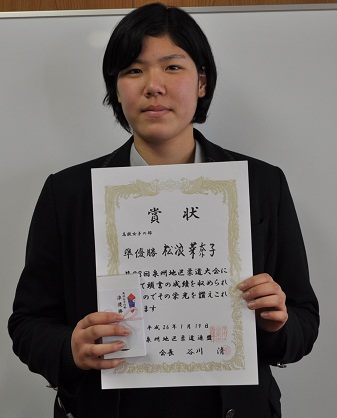 賞状
高校女子の部
準優勝 松浪華奈子
回泉州地区柔道大会に
て頭書の成績を収められ
のでその栄光を讃えこれ
ます
平成26年1月19日
泉州地区柔道連盟
会長 谷川 清
準優勝